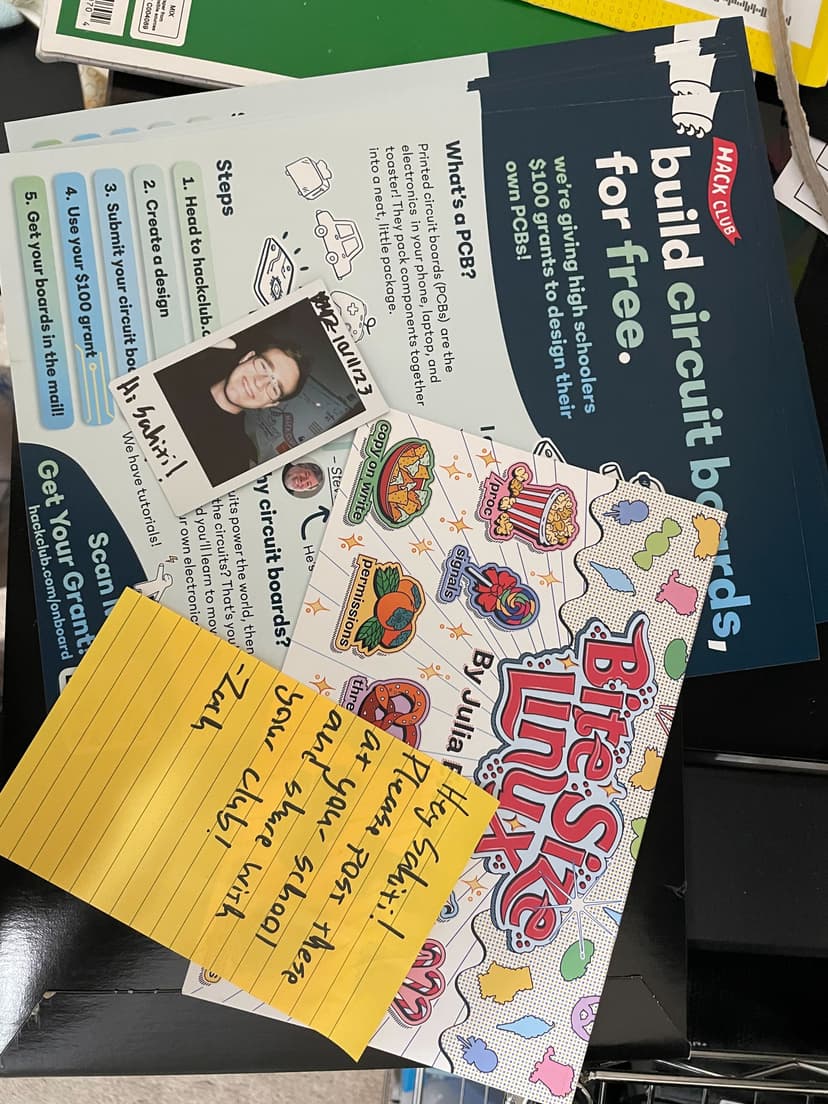 HACK CLUB
build circuit boards,
for free.
we're giving high schoolers
$100 grants to design their
own PCBs!
What's a PCB?
Printed circuit boards (PCBs) are the
electronics in your phone, laptop, and
toaster! They pack components together
into a neat, little package.
Steps
1. Head to hackclub.c
2. Create a design
3. Submit your circuit boa
4. Use your $100 grant
5. Get your boards in the mail!
We have tutorials!
hy circuit boards?
uits power the world, then
the circuits? That's you
d you'll learn to mov
r own electronic
He's
Scan
Get Your Grant!
hackclub.com/onboard
10/11/23
Hi Sahiti!
Bite Size
Linux
By Julia
/proc
copy on write
signals
permissions
thre
Hey Sahiti!
Please post these
at your school
and share with
your club!
-Zach
MIX
C004089